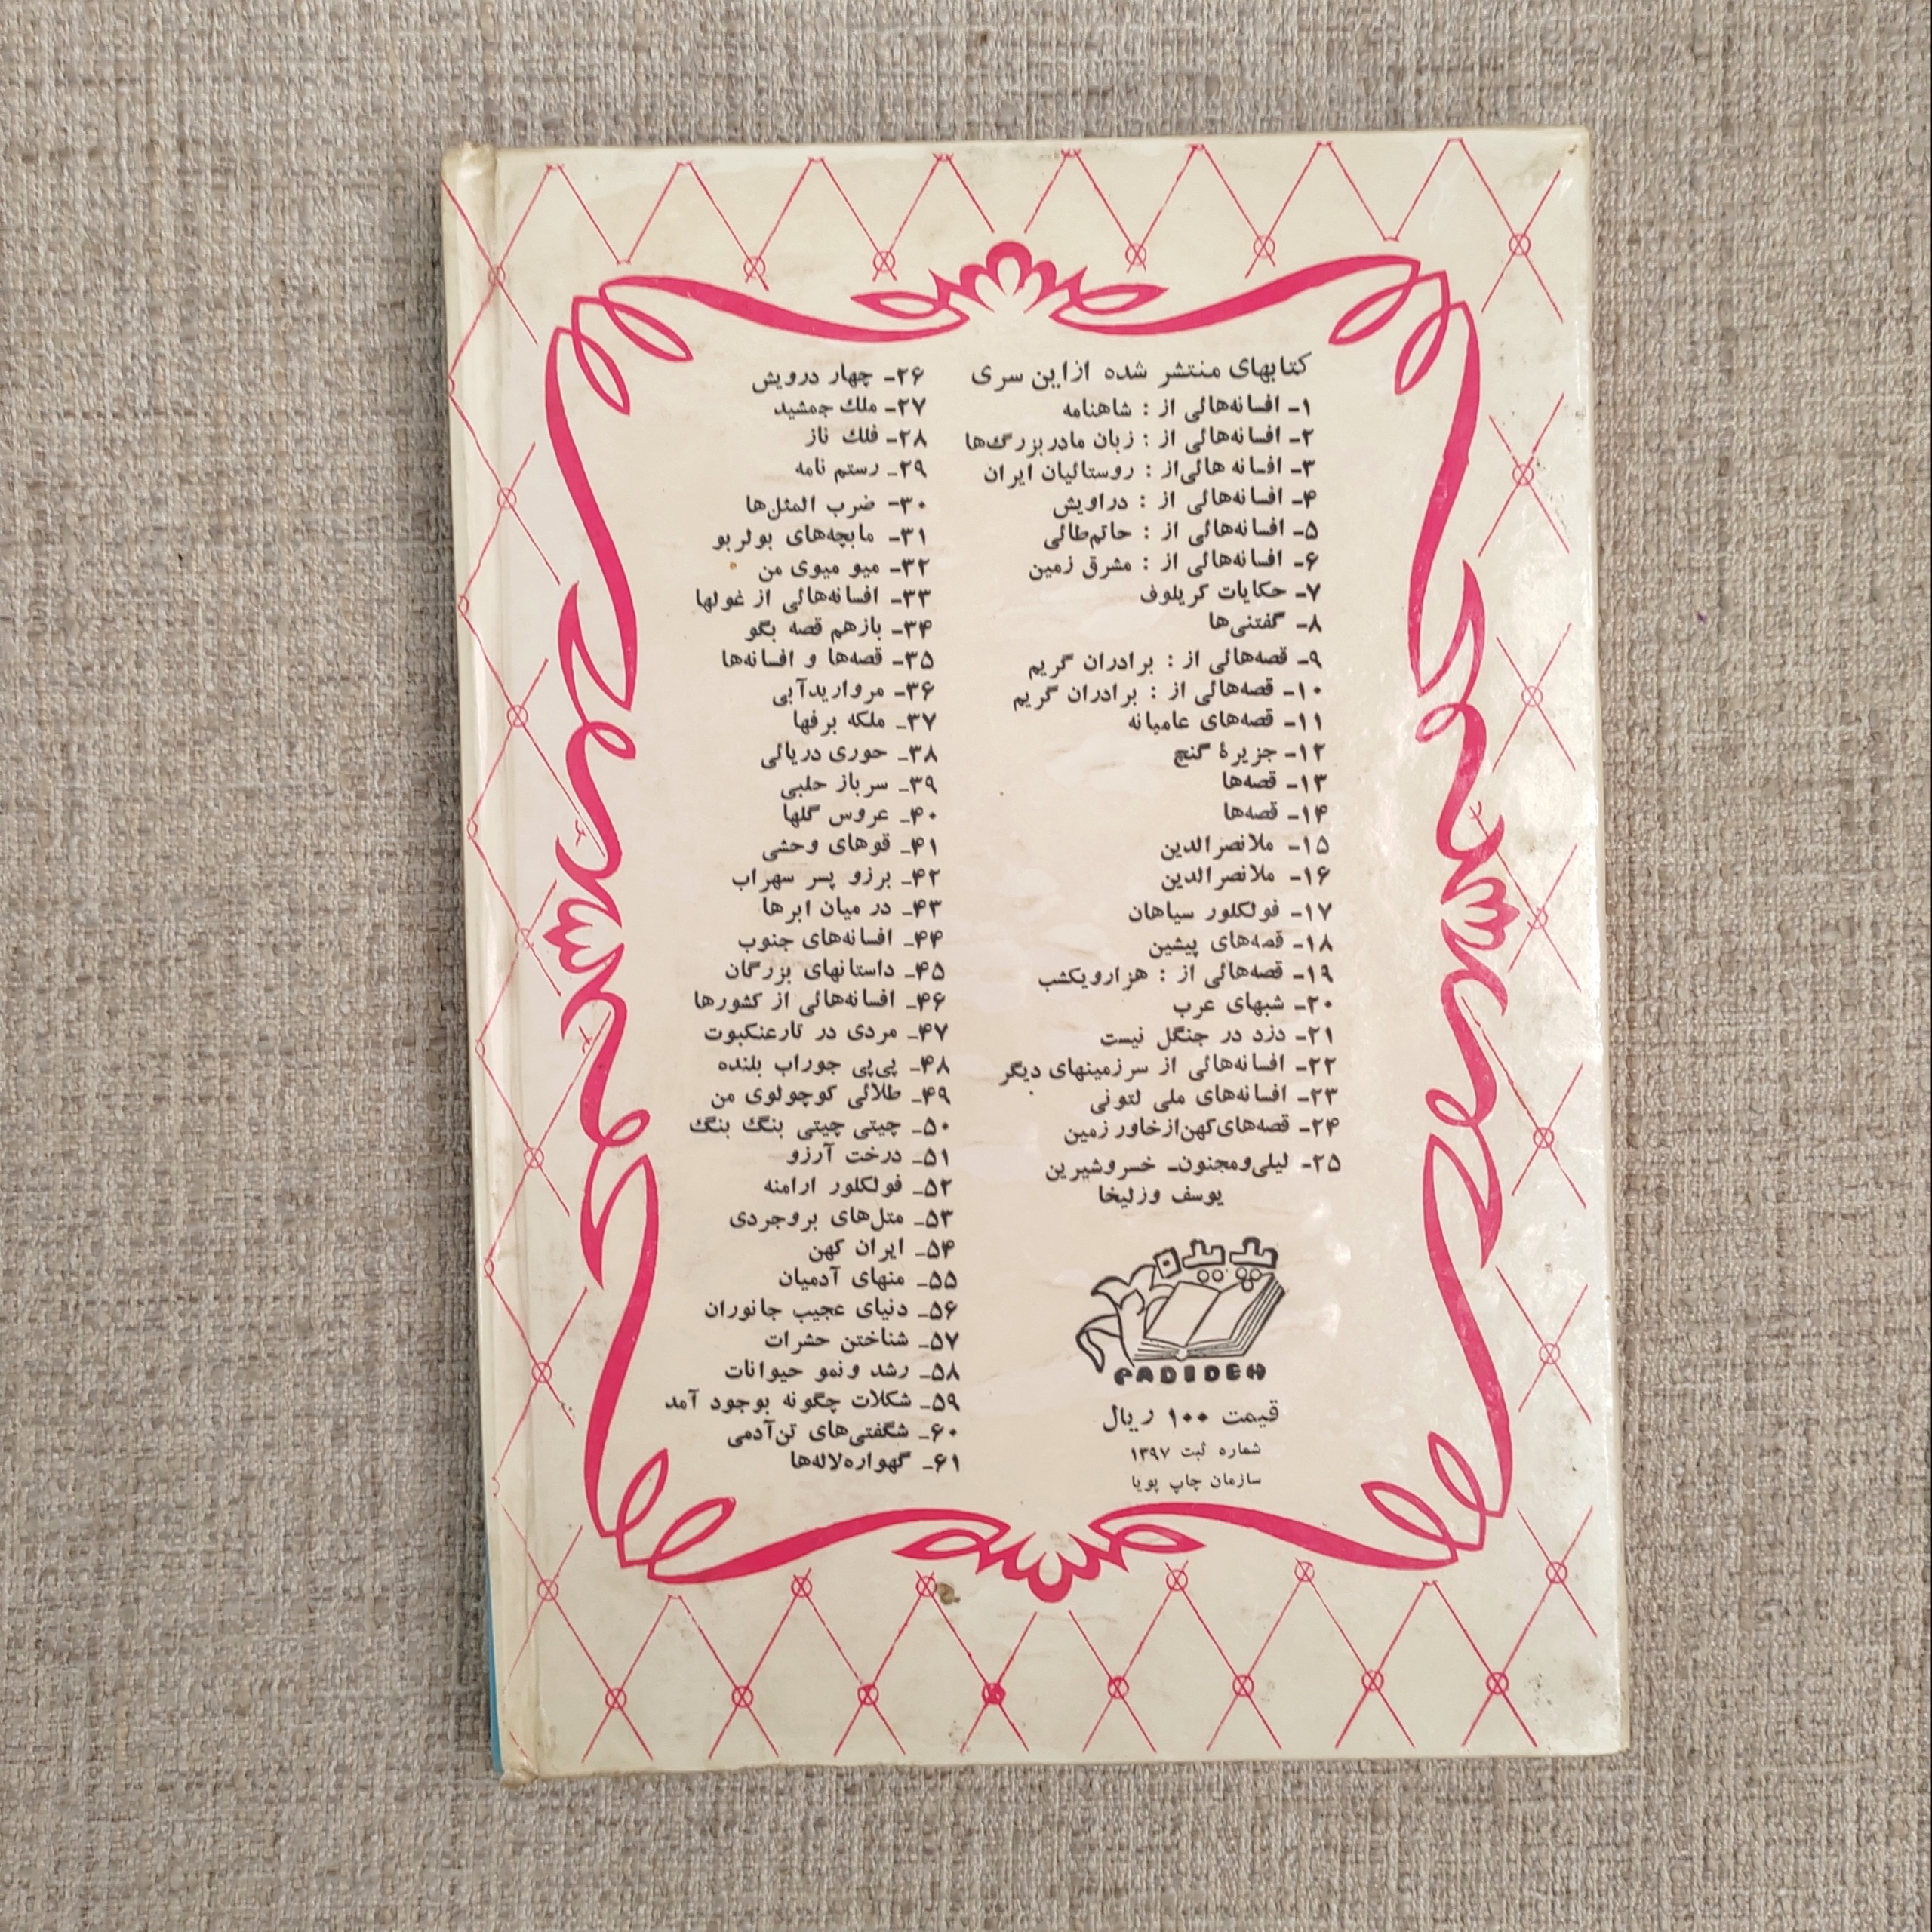 کتابهای منتشر شده ازاین سری
۱- افسانه‌هائی از : شاهنامه
۲- افسانه‌هائی از : زبان مادربزرگ‌ها
۳- افسانه هائی‌از : روستائیان ایران
۴- افسانه‌هائی از : دراویش
۵- افسانه‌هائی از : حاتم‌طائی
۶- افسانه‌هائی از : مشرق زمین
۷- حکایات کریلوف
۸- گفتنی‌ها
۹- قصه‌هائی از : برادران گریم
۱۰- قصه‌هائی از : برادران گریم
۱۱- قصه‌های عامیانه
۱۲- جزیرهٔ گنج
۱۳- قصه‌ها
۱۴- قصه‌ها
۱۵- ملانصرالدین
۱۶- ملانصرالدین
۱۷- فولکلور سیاهان
۱۸- قصه‌های پیشین
۱۹- قصه‌هائی از : هزارویکشب
۲۰- شبهای عرب
۲۱- دزد در جنگل نیست
۲۲- افسانه‌هائی از سرزمینهای دیگر
۲۳- افسانه‌های ملی لتونی
۲۴- قصه‌های‌کهن‌ازخاور زمین
۲۵- لیلی‌ومجنون- خسروشیرین
یوسف وزلیخا
پدیده
PADIDEH
قیمت ۱۰۰ ریال
شماره ثبت ۱۳۹۷
سازمان چاپ پویا
۲۶- چهار درویش
۲۷- ملك جمشید
۲۸- فلك ناز
۲۹- رستم نامه
۳۰- ضرب المثل‌ها
۳۱- مابچه‌های بولربو
۳۲- میو میوی من
۳۳- افسانه‌هائی از غولها
۳۴- بازهم قصه بگو
۳۵- قصه‌ها و افسانه‌ها
۳۶- مرواریدآبی
۳۷- ملکه برفها
۳۸- حوری دریائی
۳۹- سرباز حلبی
۴۰- عروس گلها
۴۱- قوهای وحشی
۴۲- برزو پسر سهراب
۴۳- در میان ابرها
۴۴- افسانه‌های جنوب
۴۵- داستانهای بزرگان
۴۶- افسانه‌هائی از کشورها
۴۷- مردی در تارعنکبوت
۴۸- پی‌پی جوراب بلنده
۴۹- طلائی کوچولوی من
۵۰- چیتی چیتی بنگ بنگ
۵۱- درخت آرزو
۵۲- فولکلور ارامنه
۵۳- متل‌های بروجردی
۵۴- ایران کهن
۵۵- منهای آدمیان
۵۶- دنیای عجیب جانوران
۵۷- شناختن حشرات
۵۸- رشد ونمو حیوانات
۵۹- شکلات چگونه بوجود آمد
۶۰- شگفتی‌های تن‌آدمی
۶۱- گهواره‌لاله‌ها